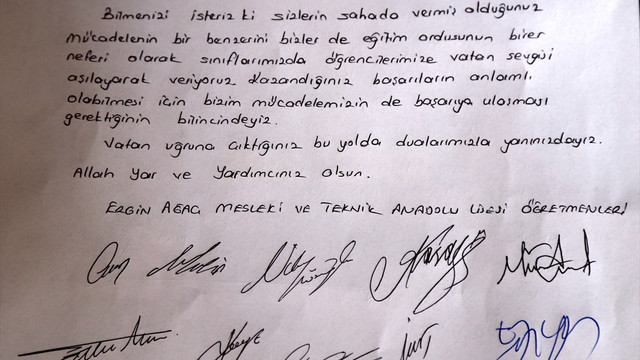 Bilmenizi isteriz ki sizlerin sahada vermiş olduğunuz
mücadelenin bir benzerini bizler de eğitim ordusunun birer
neferi olarak sınıflarımızda öğrencilerimize vatan sevgisi
aşılayarak veriyoruz. Kazandığınız başarıların anlamlı
olabilmesi için bizim mücadelemizin de başarıya ulaşması
gerektiğinin bilincindeyiz.
Vatan uğruna çıktığınız bu yolda dualarımızla yanınızdayız.
Allah Yar ve Yardımcınız olsun.
ERGİN AĞAÇ MESLEKİ VE TEKNİK ANADOLU LİSESİ ÖĞRETMENLERİ